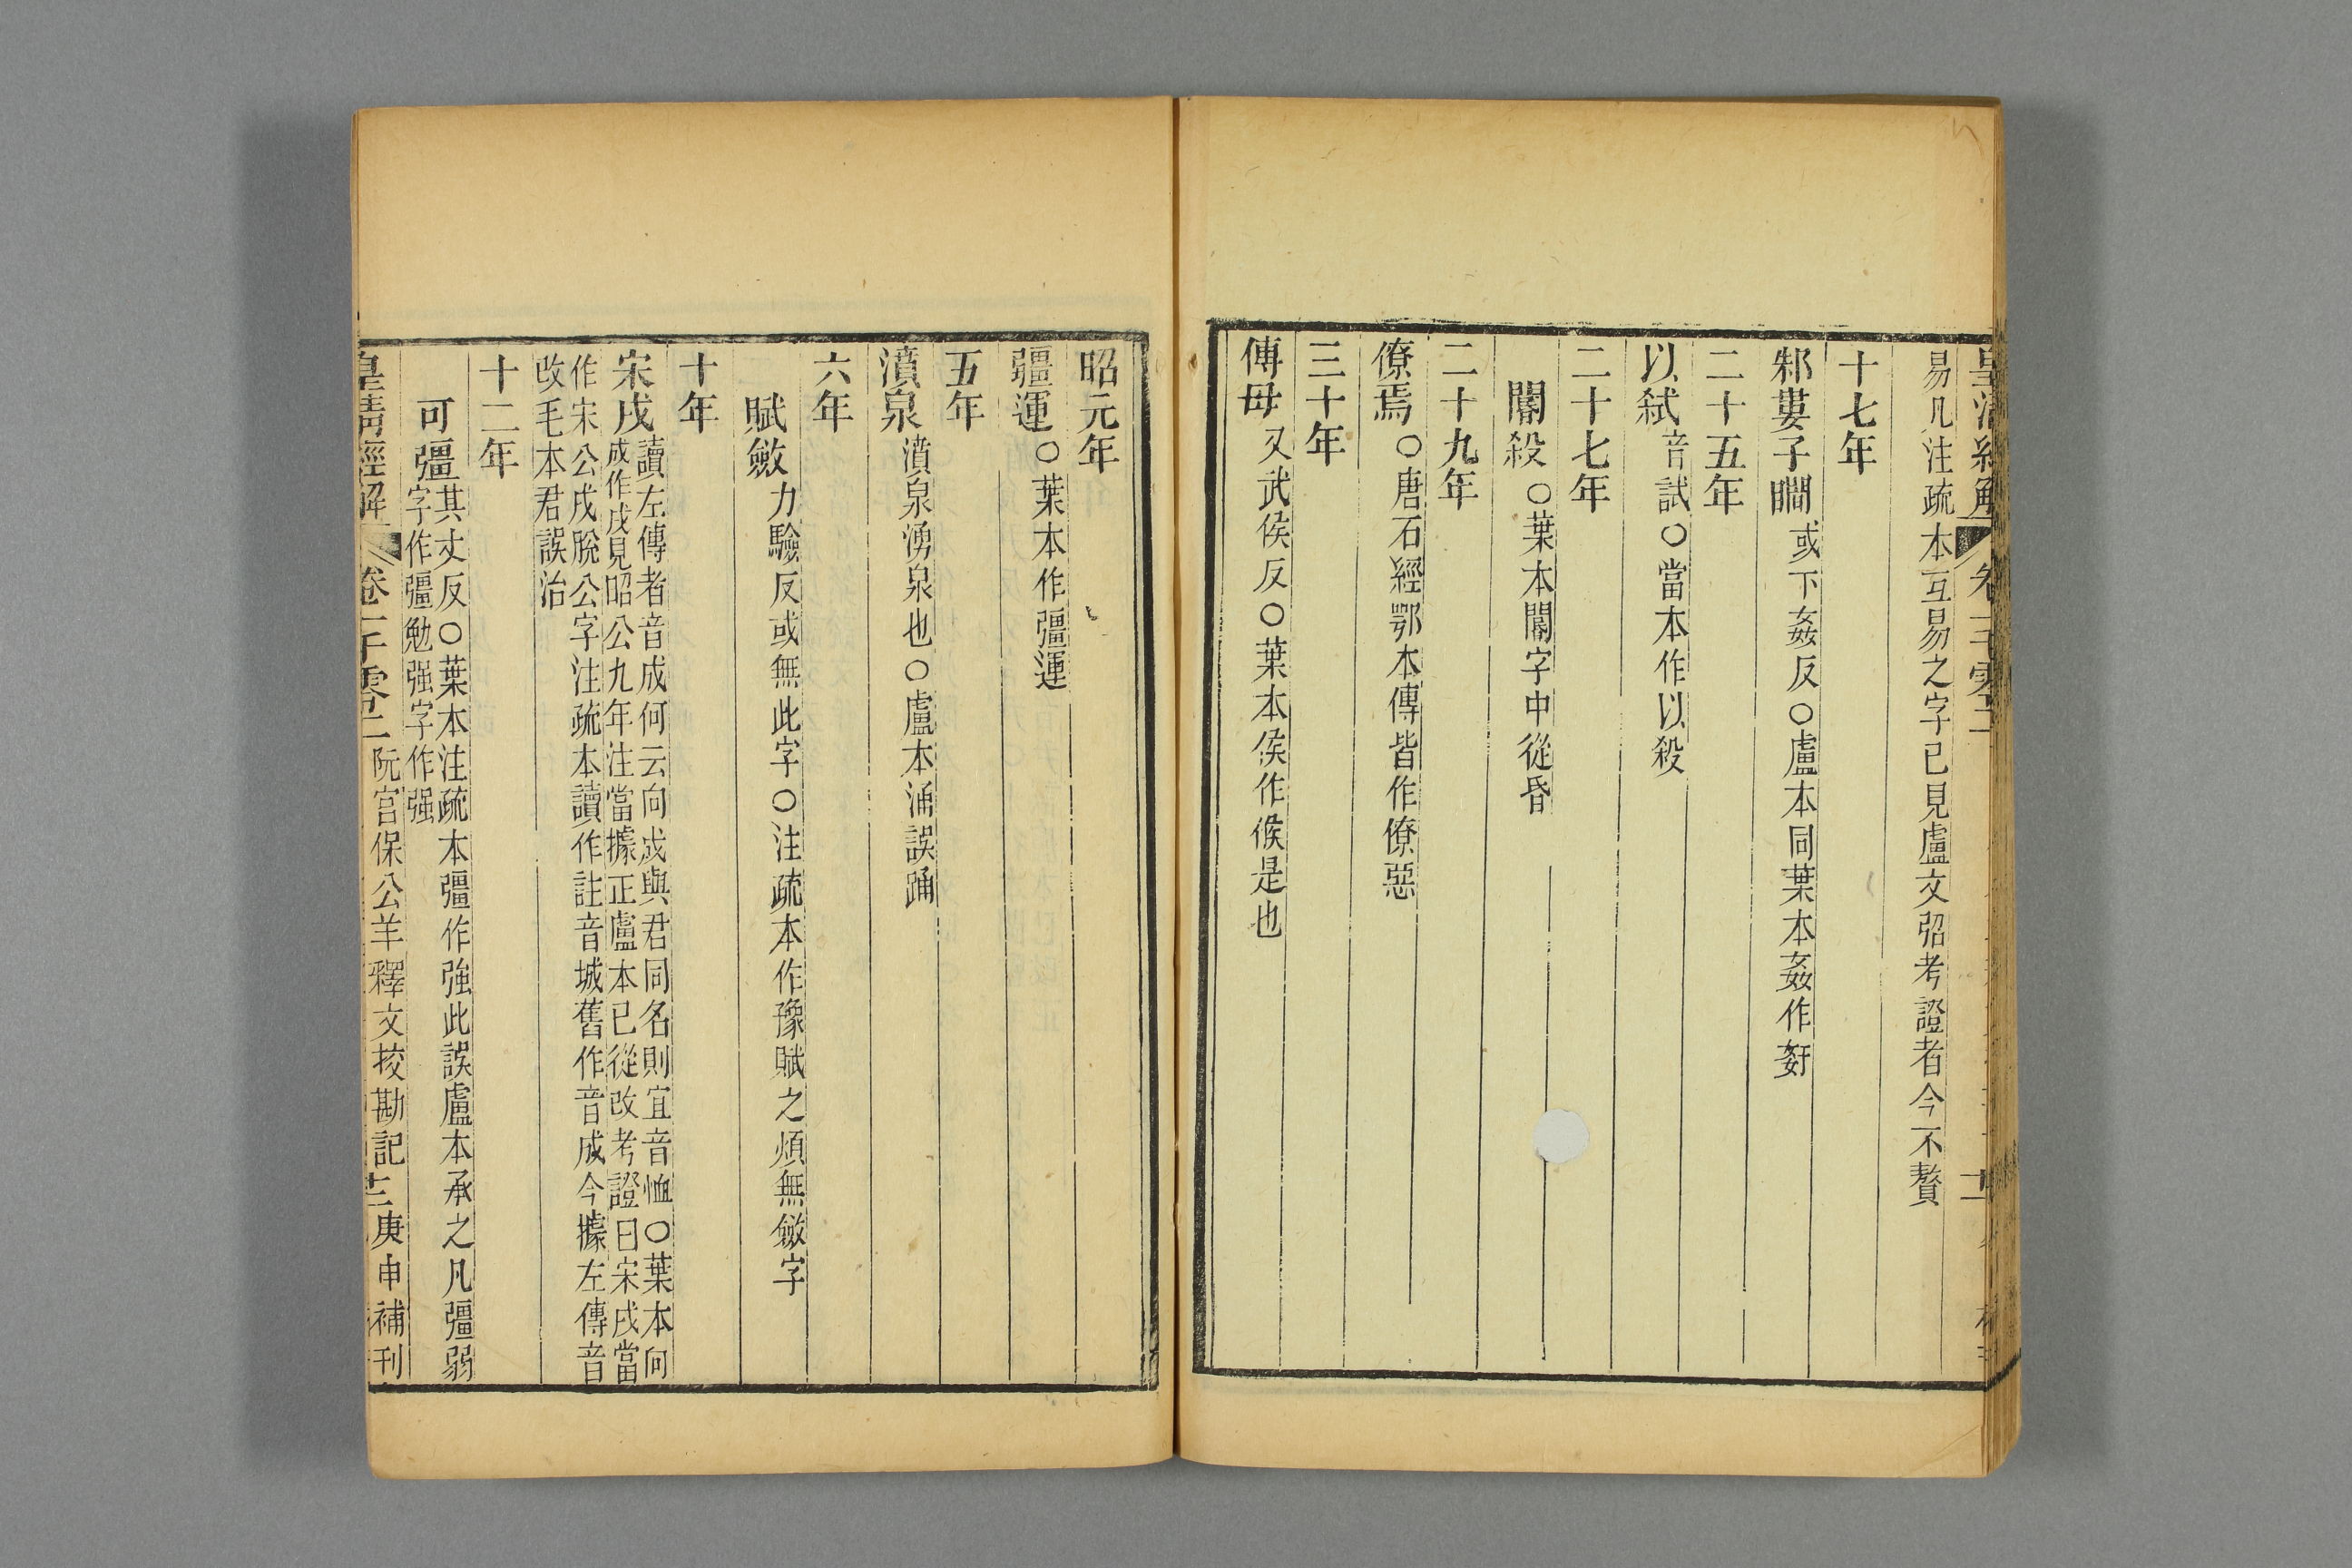 易凡注疏本互易之字已見盧文弨考證者今不贅
十七年
邾婁子瞷或下姦反○盧本同葉本姦作姧
二十五年
以弑音試○當本作以殺
二十七年
閽殺○葉本閽字中從昏
二十九年
僚焉○唐石經鄂本傳皆作僚惡
三十年
傅母又武侯反○葉本侯作候是也
昭元年
疆運○葉本作彊運
五年
濆泉濆泉湧泉也○盧本涌誤踊
六年
賦斂力驗反或無此字○注疏本作豫賦之煩無斂字
十年
宋戌讀左傳者音成何云向戌與君同名則宜音恤○葉本向
成作戌見昭公九年注當據正盧本已從改考證曰宋戌當
作宋公戌脫公字注疏本讀作註音城舊作音成今據左傳音
改毛本君誤治
十二年
可彊其丈反○葉本注疏本彊作強此誤盧本承之凡彊弱
字作彊勉强字作强
皇清經解 卷一千零二 阮宮保公羊釋文挍勘記 庚申補刊